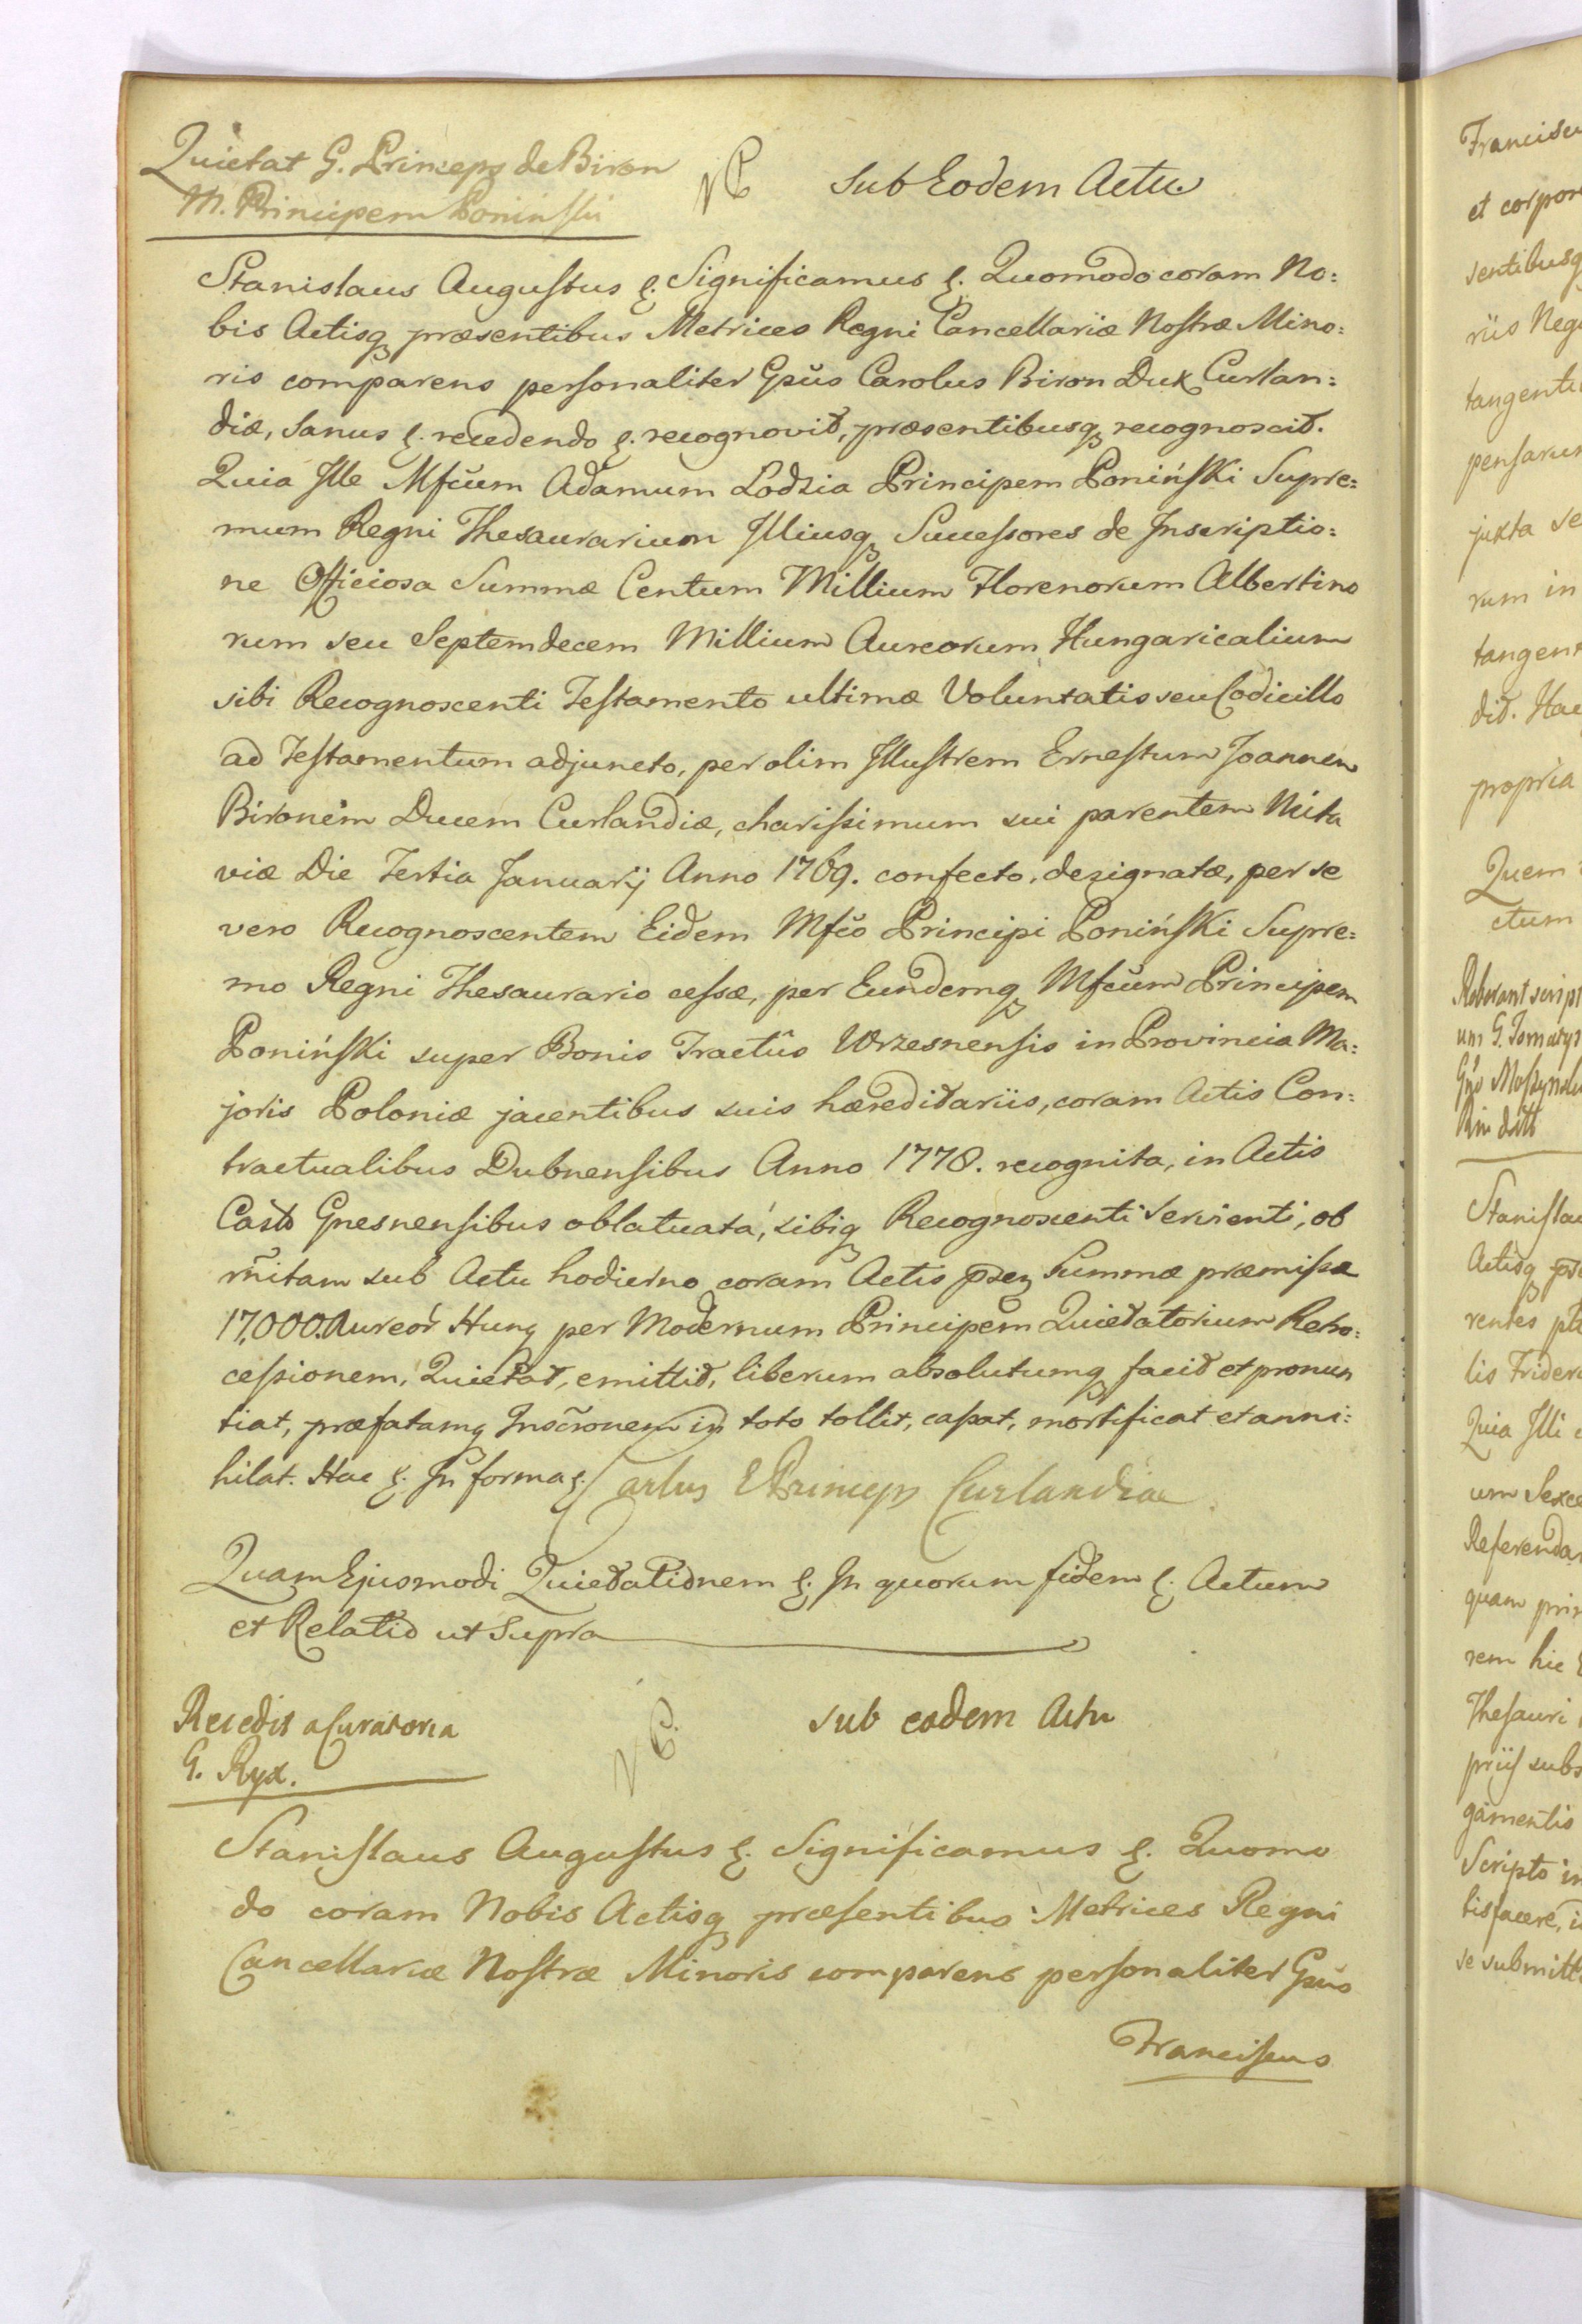 Quietat G. Princeps de Biron
M. Principem Poniński
NB
Sub Eodem Actu
Stanislaus Augustus &. Significamus &. Quomodo coram No:
bis Actisq præsentibus Metrices Regni Cancellariæ Nostræ Mino:
ris comparens personaliter Gsũs Carolus Biron Dux Curlan:
diæ, Sanus &. recedendo &. recognovit, præsentibusq recognoscit.
Quia Ille Mfcũm Adamum Lodzia Principem Poniński Supre:
mum Regni Thesaurarium Illiusq Successores de Inscriptio:
ne Officiosa Summæ Centum Millium Florenorum Albertino
rum seu Septemdecem Millium Aureorum Hungaricalium
sibi Recognoscenti Testamento ultimæ Voluntatis seu Codicillo
ad Testamentum adjuncto, per olim Illustrem Ernestum Joannem
Bironem Ducem Curlandiæ, charissimum sui parentem Mita
viæ Die Tertia Januarij Anno 1769. confecto, designatæ, per se
vero Recognoscentem Eidem Mfcõ Principi Poniński Supre:
mo Regni Thesaurario cessæ, per Eundemq Mfcũm Principem
Poniński super Bonis Tractûs Wrzesnensis in Provincia Ma:
joris Poloniæ jacentibus suis hæreditariis, coram Actis Con:
tractualibus Dubnensibus Anno 1778. recognita, in Actis
Casts Gnesnensibus oblatuata, sibiq Recognoscenti servienti, ob
rñitam sub Actu hodierno coram Actis psez Summæ præmissæ
17,000. Aureor Hung per Modernum Principem Quietatorium Retro:
cessionem, Quietat, emittit, liberum absolutumq facit et pronun
tiat, præfatamq Inscrõnem in toto tollit, cassat, mortificat et anni:
hilat. Hac &. In forma &. Carlus E Princeps Curlandiae
Quam Ejusmodi Quietationem &. In quorum fidem &. Actum
et Relatio ut Supra
Recedit a Curatoria
G. Ryx.
NB.
sub eodem Actu
Stanislaus Augustus &. Significamus &. Quomo
do coram Nobis Actisq præsentibus Metrices Regni
Cancellariæ Nostræ Minoris comparens personaliter Gsũs
Franciscus
Francisc
et corpor
sentibusq
riis Neg
tangenti
pensarum
juxta se
rum in
tangent
dit. Hac
propria
Quem
ctum
Roborant script
Stanislau
Actisq
rentes
lis Frider
Quia Illi
um Sexce
Referenda
quam pri
rem hic
Thesauri
priis subs
gamentis
Scripto in
tisfacere,
se submitt